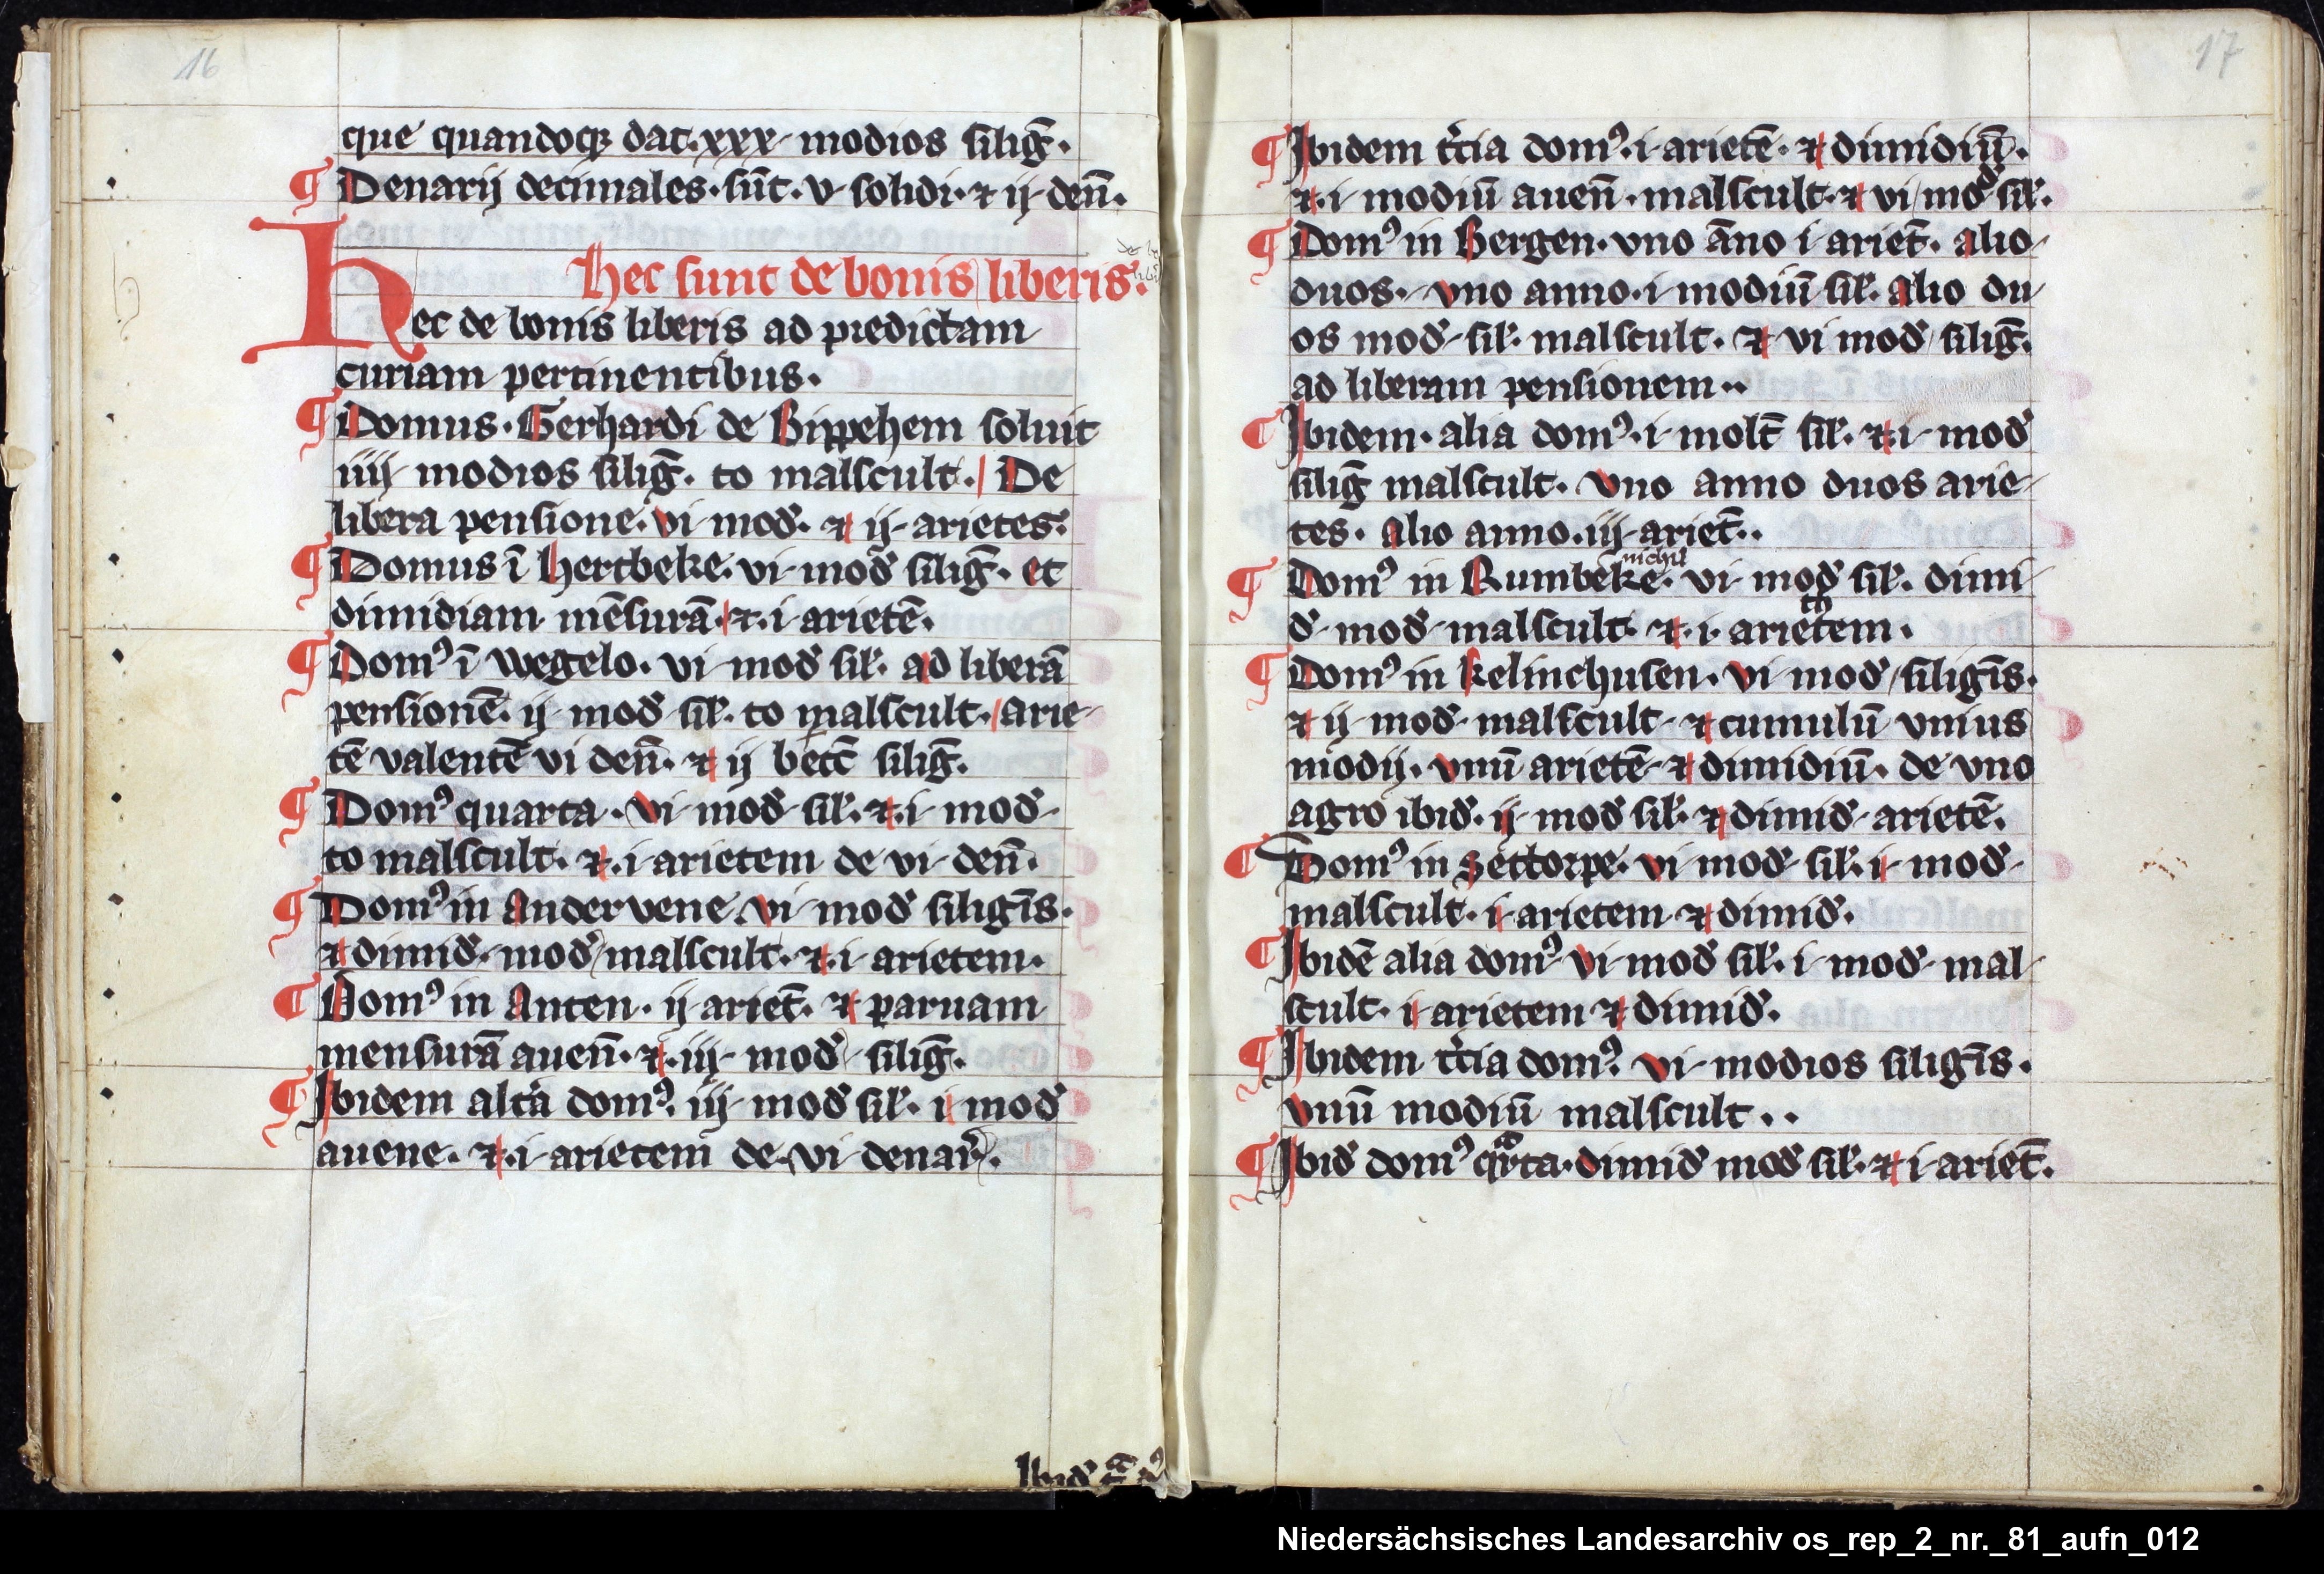 16
que quandoqꝫ dat. xxx modios siligꝭ.
¶ Denarij decimales. sūt. v solidi. ⁊ ij denꝭ.
Hec sunt de bonis liberis.
Hec de bonis liberis ad predictam
curiam pertinentibus.
¶ Domus. Gerhardi de Bippehem soluit
iiij modios silig̅. to malscult. De
libera pensione. vi mod̅. ⁊ ij arietes.
¶ Domus ī Hertbeke. vi mod̅ silig̅. et
dimidiam mēsurā. ⁊. i arietē.
¶ Dom⁹ ī Wegelo. vi mod̅ sil̅. ad liberā
pensionē. ij mod̅ sil̅. to malscult. arie-
tē valentē vi den̅. ⁊ ij bect̅ silig̅.
¶ Dom⁹ quarta. vi mod̅ sil̅. ⁊. i mod̅
to malscult. ⁊. i arietem de vi den̅.
¶ Dom⁹ in Andervene. vi mod̅ siligīs.
⁊ dimid̅. mod̅ malscult. ⁊. i arietem.
¶ Dom⁹ in Anten. ij ariet̅. ⁊ paruam
mensurā auen̅. ⁊. iij mod̅ silig̅.
¶ Ibidem alt̅a dom⁹. iij mod̅ sil̅. i mod̅
auene. ⁊. i arietem de. vi denar̅.
17
¶ Ibidem t̅cia dom⁹. i arietē. ⁊ dimidiū.
⁊. i modiū auen̅. malscult. ⁊ vi mod̅ sil̅.
¶ Dom⁹ in Bergen. vno āno i ariet̅. alio
duos. vno anno. i modiū sil̅. alio du
os mod̅ sil̅. malscult. ⁊ vi mod̅ silig̅.
ad liberam pensionem..
¶ Ibidem. alia dom⁹. i molt̅ sil̅. ⁊. i mod̅
silig̅ malscult. vno anno duos arie-
tes. alio anno. iij ariet̅..
nichil
¶ Dom⁹ in Rumbeke. vi mod̅ sil̅. dimi-
d̅ mod̅ malscult. ⁊. i. arietem.
¶ Dom⁹ in kelinchusen. vi mod̅ siligīs.
⁊ ij mod̅ malscult ⁊ cumulū vnius
modij. vnū arietē ⁊ dimidiū. de vno
agro ibid̅. ij mod̅ sil̅. ⁊ dimid̅ arietē.
¶ Dom⁹ in Settorpe. vi mod̅ sil̅. i mod̅
malscult. i arietem ⁊ dimid̅.
¶ Ibidē alia dom⁹ vi mod̅ sil̅. i mod̅ mal-
scult. i arietem ⁊ dimid̅.
¶ Ibidem t̅cia dom⁹. vi modios siligīs.
vnū modiū malscult..
¶ Ibid̅ dom⁹ qᵃrta. dimid̅ mod̅ sil̅. ⁊ i ariet̅.
Niedersächsisches Landesarchiv os_rep_2_nr._81_aufn_012